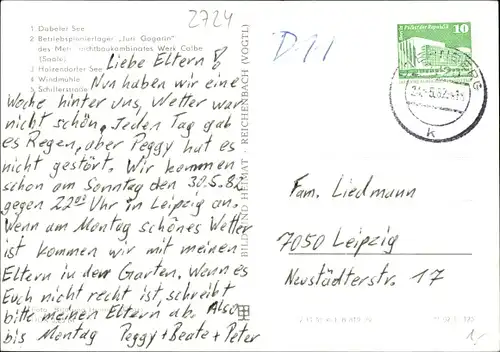 2724
1 Dabeler See
2 Betriebspionierlager "Juri Gagarin"
des Metalleichtbaukombinates Werk Calbe
(Saale)
3 Holzendorfer See
4 Windmühle
5 Schillerstraße
Liebe Eltern!
Nun haben wir eine
Woche hinter uns, Wetter war
nicht schön. Jeden Tag gab
es Regen, aber Peggy hat es
nicht gestört. Wir kommen
schon am Sonntag den 30.5.82
gegen 22 Uhr in Leipzig an.
Wenn am Montag schönes Wetter
ist kommen wir mit meinen
Eltern in den Garten. Wenn es
Euch nicht recht ist, schreibt
bitte meinen Eltern ab. Also
bis Montag Peggy + Beate + Peter
BILD UND HEIMAT · REICHENBACH (VOGTL)
10
Fam. Liedmann
7050 Leipzig
Neustädterstr. 17